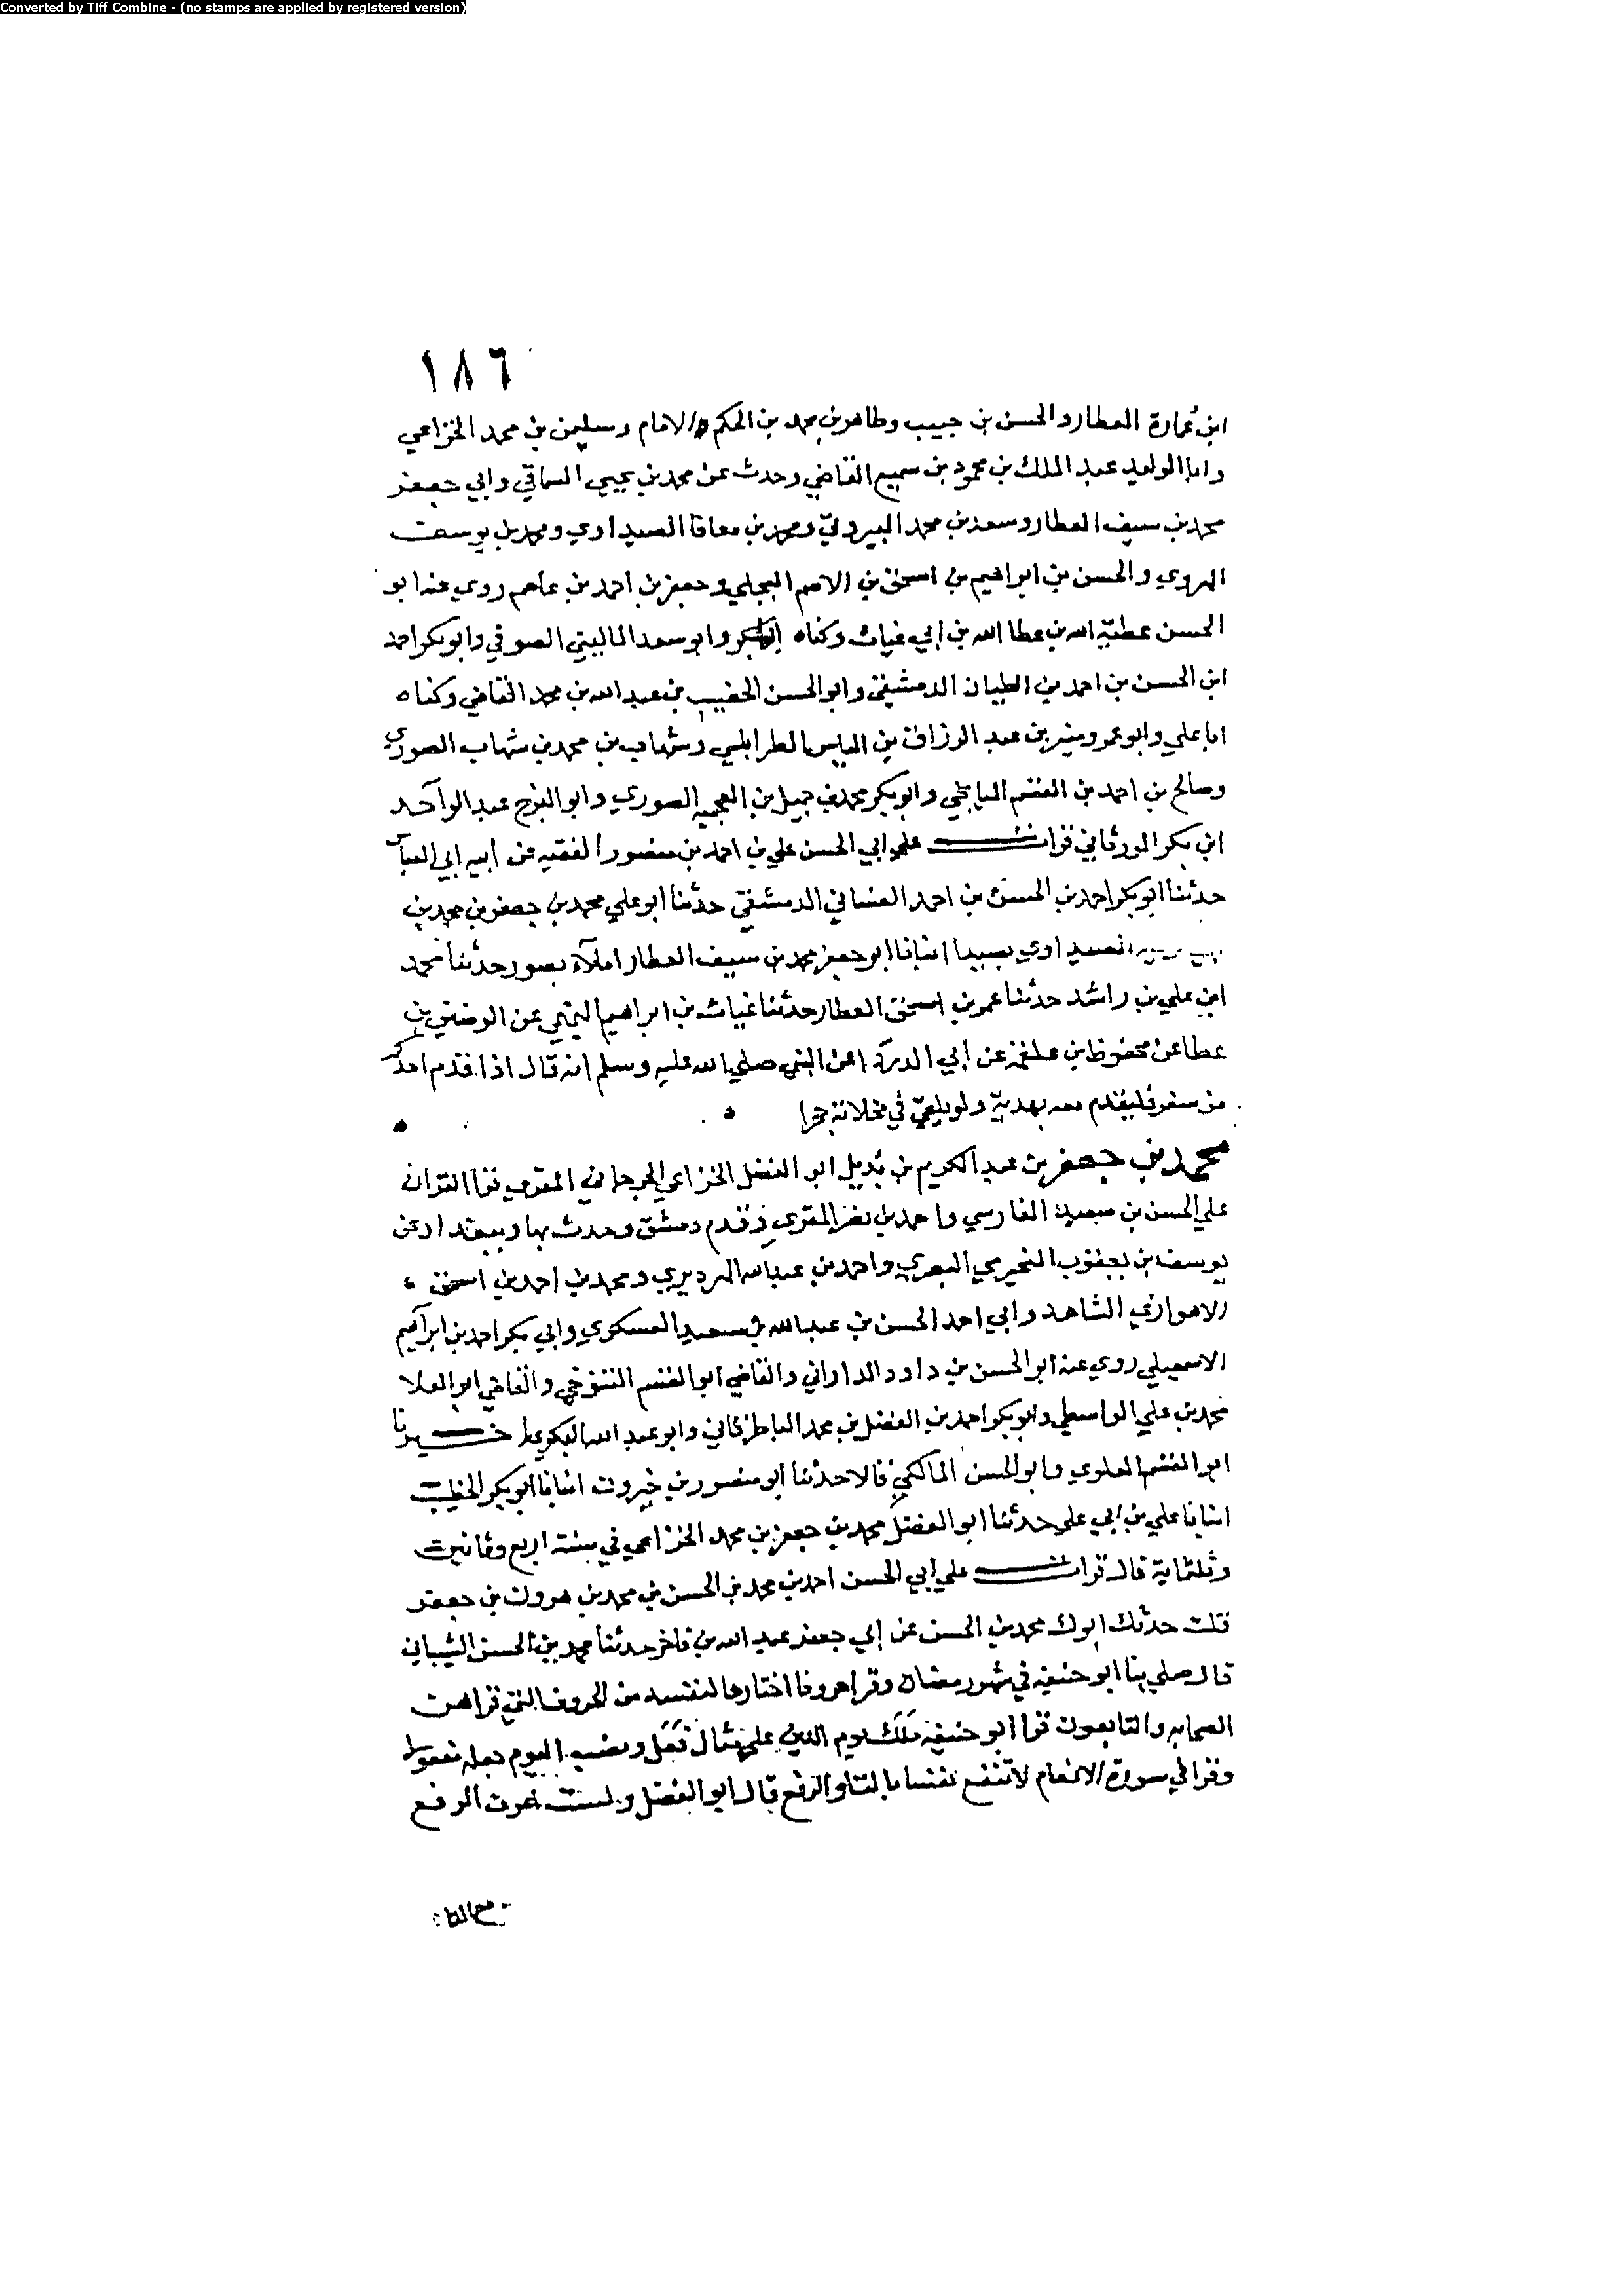 Converted by Tiff Combine - (no stamps are applied by registered version)
١٨٦
ابن عمارة العطار والحسن بن حبيب وطاهر بن محمد بن الحكم الامام وسليمن بن محمد الخزاعي
وابا الوليد عبد الملك بن محمود بن سميع القاضي وحدث عن محمد بن يحيى السماقي وابي جعفر
محمد بن سيف العطار وسعد بن محمد البيروتي ومحمد بن معافا الصيداوي ومحمد بن يوسف
الهروي والحسن بن ابراهيم بن اسحق بن الاصم البجلي وجعفر بن احمد بن عاصم روي عنه ابو
الحسن عطية الله بن عطا الله بن ابي غياث وكناه ابابكر وابو سعد الماليني الصوفي وابو بكر احمد
ابن الحسن بن احمد بن الطيان الدمشقي وابو الحسن الخصيب بن عبد الله بن محمد القاضي وكناه
ابا علي وابو عمرو منير بن عبد الرزاق بن الطرابلسي وشهاب بن محمد بن شهاب الصوري
وصالح بن احمد بن القسم الميانجي وابو بكر محمد بن جميل بن الصوري وابو الفرج عبد الواحد
ابن بكر الورثاني قرات على ابي الحسن علي بن احمد بن منصور الفقيه عن ابيه ابي العباس
حدثنا ابو بكر احمد بن الحسن بن احمد الغساني الدمشقي حدثنا ابو علي محمد بن جعفر بن محمد بن
الصيداوي بصيدا انبانا ابو جعفر محمد بن سيف العطار املآء بصور حدثنا محمد
ابن علي بن راشد حدثنا عمر بن اسحق العطار حدثنا غياث بن ابراهيم التيمي عن الوضين بن
عطا عن محفوظ بن علقمة عن ابي الدردا عن النبي صلى الله عليه وسلم انه قال اذا قدم احدكم
من سفر فليقدم معه بهدية ولو يلقي في مخلاته حجرا
محمد بن جعفر بن عبد الكريم بن بديل ابو الفضل الخزاعي الجرجاني المقري قرا القران
على الحسن بن سعيد الفارسي واحمد بن نصر المقري وقدم دمشق وحدث بها وببغداد عن
يوسف بن يعقوب النجيرمي البصري واحمد بن عبيد الله ومحمد بن احمد بن اسحق
الاهوازي الشاهد وابي احمد الحسن بن عبد الله بن سعيد العسكري وابي بكر احمد بن ابراهيم
الاسمعيلي روي عنه ابو الحسن بن داود الداراني والقاضي ابو القسم التنوخي والقاضي ابو العلا
محمد بن علي الواسطي وابو بكر احمد بن الفضل بن محمد الباطرقاني وابو عبد الله اخبرنا
ابو القسم العلوي وابو الحسن المالكي قالا حدثنا ابو منصور بن خيرون انبانا ابو بكر الخطيب
انبانا علي بن ابي علي حدثنا ابو الفضل محمد بن جعفر بن محمد الخزاعي في سنة اربع وثمانين
وثلثماية قال قرات على ابي الحسن احمد بن محمد بن الحسن بن محمد بن هرون بن جعفر
قلت حدثك ابوك محمد بن الحسن عن ابي جعفر عبد الله بن فاخر حدثنا محمد بن الحسن الشيباني
قال صلى بنا ابو حنيفة في شهر رمضان وقرا حروفا اختارها لنفسه من الحروف التي قراهن
الصحابه والتابعون قرا ابو حنيفة مَلَكَ يوم الدين على مثال فَعَلَ ونصب اليوم جعله مفعولا
وقرا في سورة الانعام لا تنفع نفسا بالتاو الرفع قال ابو الفضل ولست اعرف الرفع
مع التا